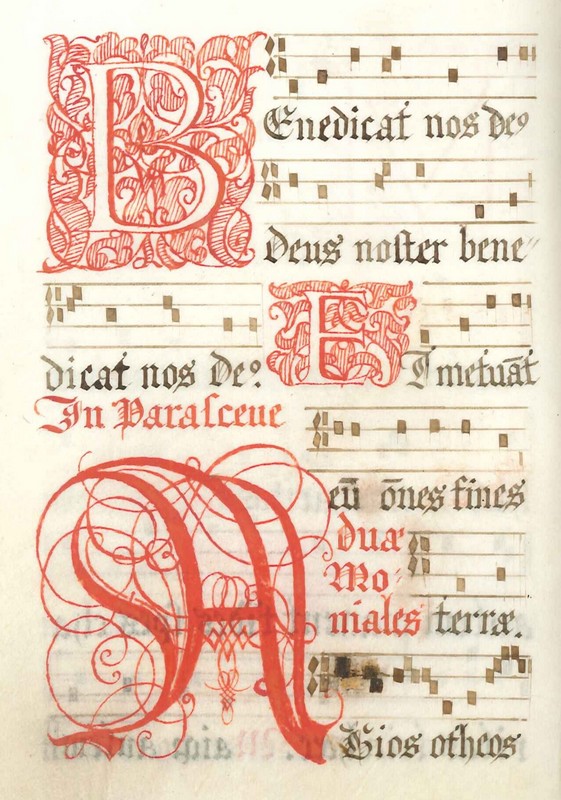 BEnedicat nos deꝰ
deus noster bene⸗
dicat nos de⁹: ETmetuāt
In Parasceue
eū ōnes fines
duæ
Mo⸗
niales terræ.
AGios otheos